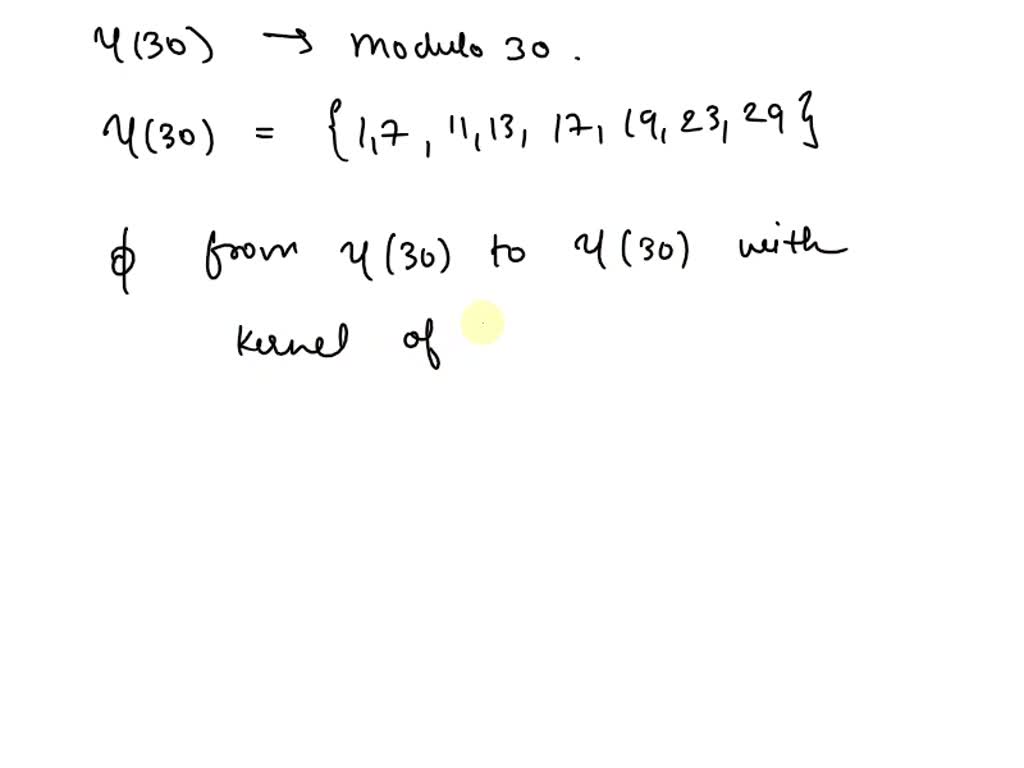 U(30) → Modulo 30.
U(30) = {1,7, 11,13, 17, 19, 23, 29}
ϕ from U(30) to U(30) with
Kernel of